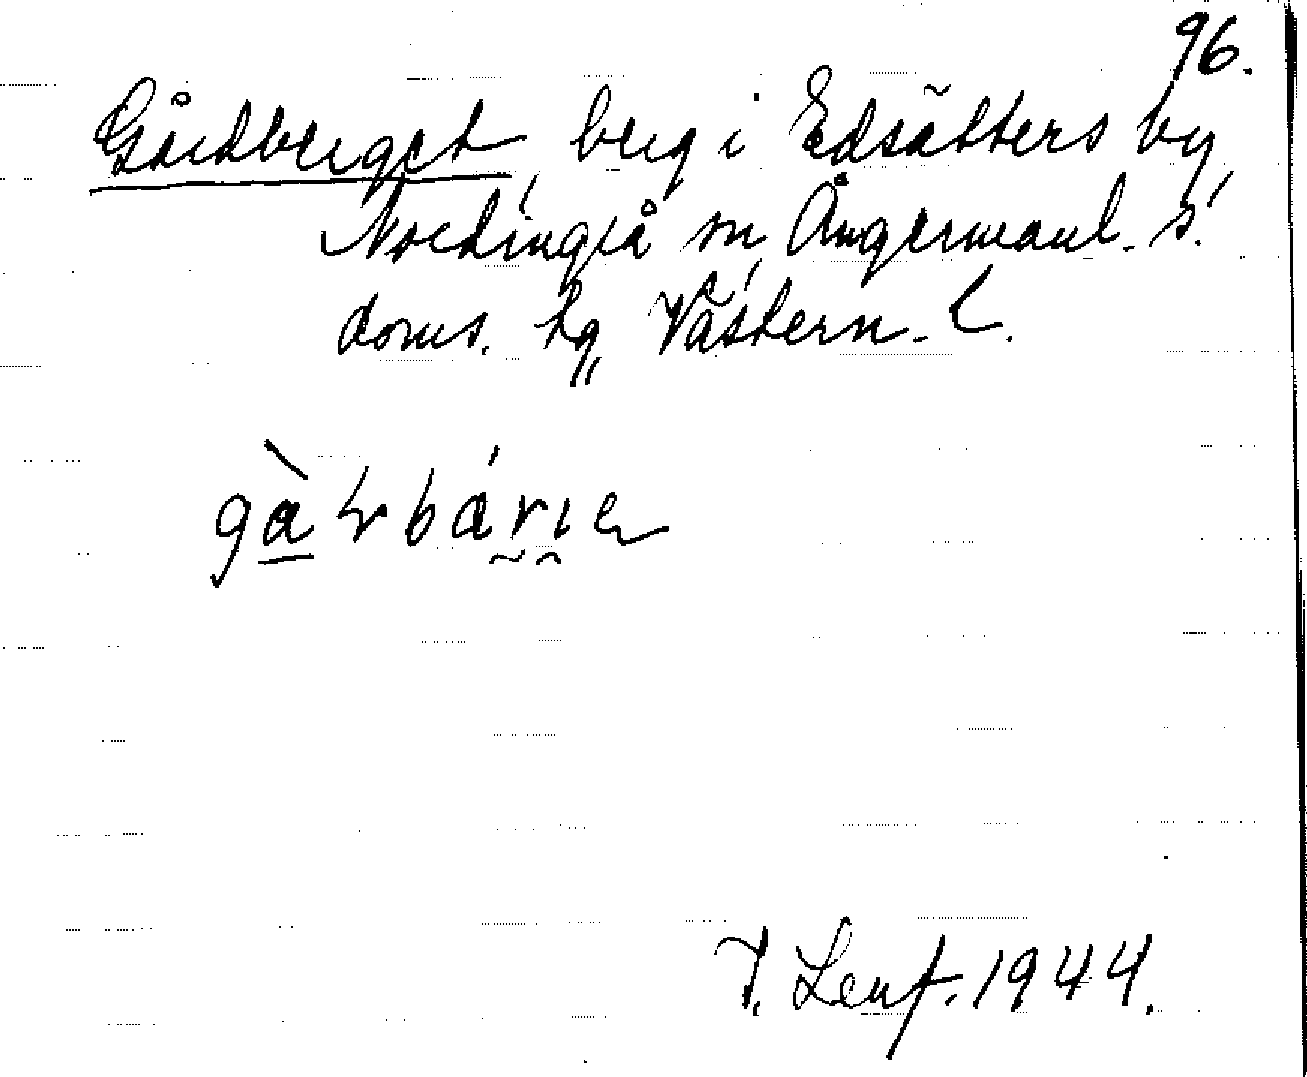 96.
Gårdberget, berg i Edsätters by,
Nordingrå sn, Ångermanl. s.
doms. hg, Västern. l.
T. Lenf. 1944.